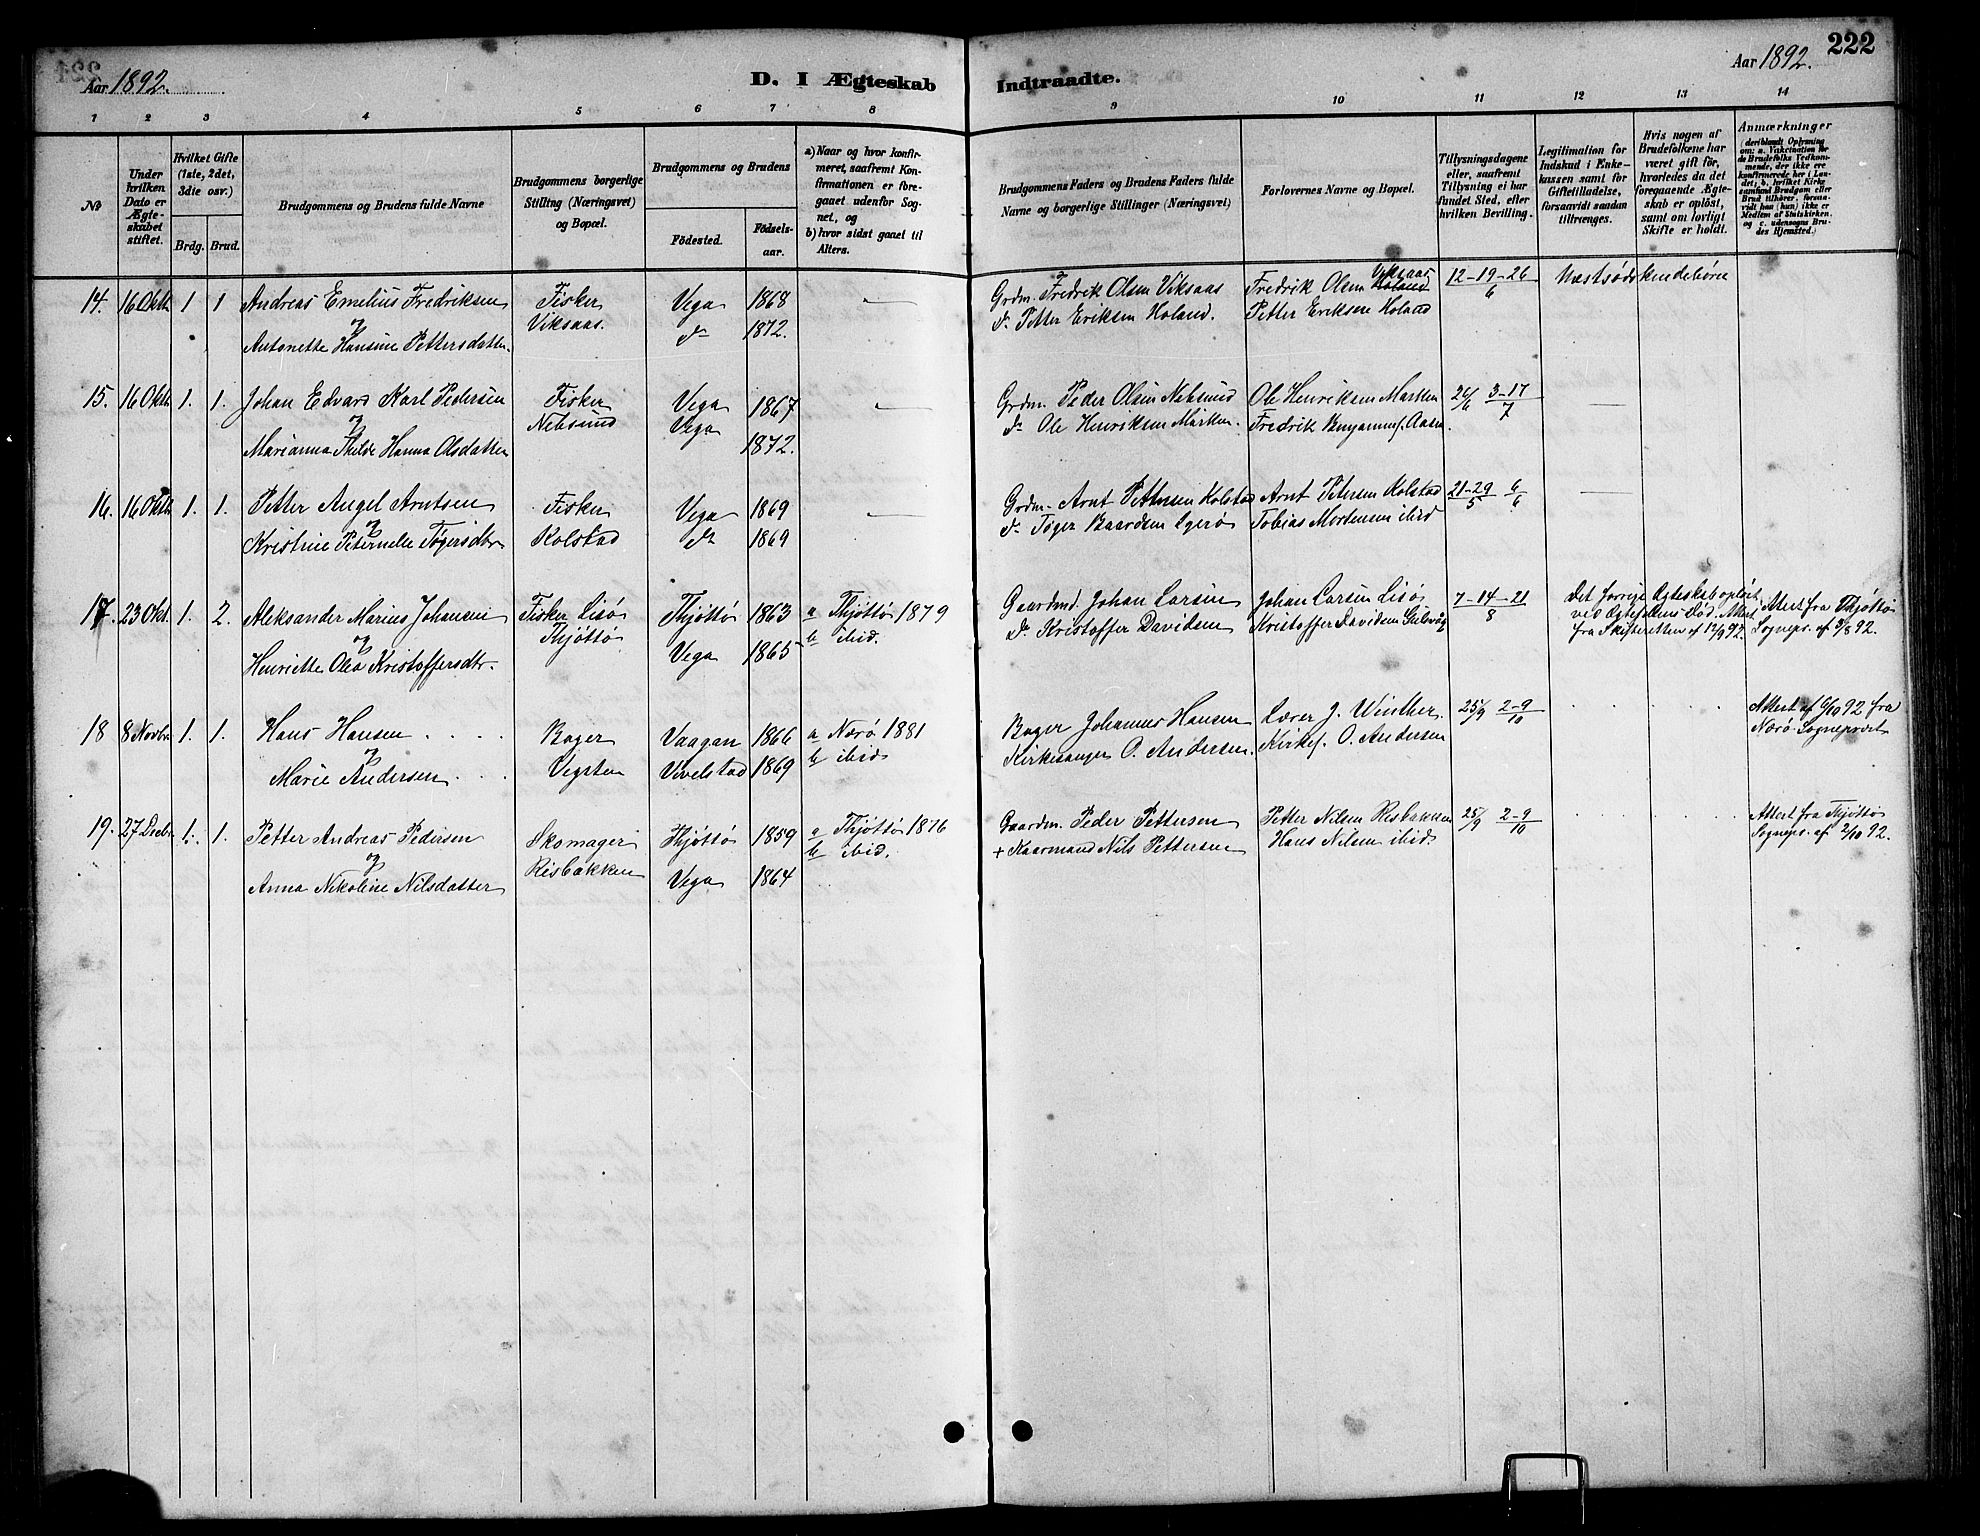 Aar 1892.
D. I Ægteskab Indtraadte.
Aar 1892.
222
1 2 3 4 5 6 7 8 9 10 11 12 13 14
No
Under hvilken Dato er Ægteskabet stiftet.
Hvilket Gifte (1ste, 2det, 3die osv.)
Brdg. Brud.
Brudgommens og Brudens fulde Navne
Brudgommens borgerlige Stilling (Næringsvei) og Bopæl.
Brudgommens og Brudens
Födested.
Födselsaar.
a) Naar og hvor konfirmeret, saafremt Konfirmationen er foregaaet udenfor Sognet, og
b) hvor sidst gaaet til Alters.
Brudgommens Faders og Brudens Faders fulde Navne og borgerlige Stillinger (Næringsvei)
Forlovernes Navne og Bopæl.
Tillysningsdagene eller, saafremt Tillysning ei har fundet Sted, efter hvilken Bevilling.
Legitimation for Indskud i Enkekassen samt for Giftetilladelse, forsaavidt saadan tiltrænges.
Hvis nogen af Brudefolkene har været gift för, hvorledes da det foregaaende Ægteskab er oplöst, samt om lovligt Skifte er holdt.
Anmærkninger (deriblandt Oplysning om: a. Vakcination for de Brudefolks Vedkommende, der ikke ere konfirmerede her i Landet; b. hvilket Kirkesamfund Brudgom eller Brud tilhörer, forsaavidt han (hun) ikke er Medlem af Statskirken, og c. udensogns Brudes Hjemsted.)
14. 16 Oktb 1 1 Andreas Emelius Fredriksen Fisker Vega 1868 Grdm. Fredrik Olsen Viksaas Fredrik Olsen Viksaas 12-19-26/6 Næstsødskendebörn
og
Antonette Hansine Pettersdatter. Viksaas. do 1872. do Petter Eriksen Holand. Petter Eriksen Holand
15. 16 Oktb 1. 1. Johan Edvard Karl Pedersen Fisker Vega 1867 Grdm. Peder Olsen Nebsund Ole Henriksen Marken 26/6 3-17/7
og
Marianna Thilde Hanna Olsdatter Nebsund Vega 1872. do Ole Henriksen Marken. Fredrik Benjamins. Aasen.
16. 16 Oktb 1. 1. Petter Angel Arntsen Fisker Vega 1869 Grdm. Arnt Pettersen Kolstad Arnt Petersen Kolstad 21-29/5 6/6
og
Kristine Peternelle Tøgersdtr. Kolstad do 1869 do Tøger Baardsen Igerø Tobias Mortensen ibid
17. 23 Okt. 1. 2. Aleksander Marius Johansen Fisker Lisø Thjøttø 1863 a Thjøttø 1879 Gaardmd. Johan Larsen Johan Larsen Lisø 7-14-21/8 Det forrige Egteskab opløst ved Egtefellens Død. Attest fra Skifteretten af 12/9 92. Attest fra Thjøttø Sognepr. af 3/8 92.
og
Henriette Olea Kristoffersdtr. Thjøttø Vega 1865 b ibid. do Kristoffer Davidsen Kristoffer Davidsen Gulsvåg
18 8 Novbr. 1. 1. Hans Hansen Bager Vaagan 1866 a Nærö 1881 Bager Johannes Hansen Lærer J. Winther. 25/9 2-9/10 Attest af 6/10 92 fra Nærø Sogneprest
og
Marie Andersen Vegsten Vevelstad 1869 b ibid Kirkesanger O. Andersen. Kirkes. O. Andersen
19. 27 Decbr. 1. 1. Petter Andreas Pedersen Skomager Thjøttø 1859 a Thjøttø 1876 Gaardm. Peder Pettersen Petter Nilsen Risbakken 25/9 2-9/10 Attest fra Thjøttø Sognepr. af 2/10 92.
og
Anna Nikoline Nilsdatter Risbakken Vega 1864 b ibid. + Kaarmand Nils Pettersen Hans Nilsen ibid